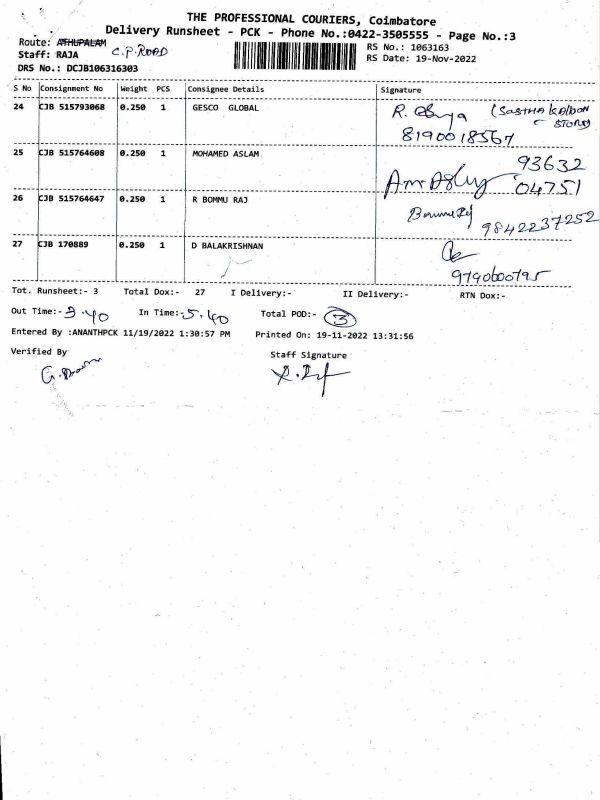 THE PROFESSIONAL COURIERS, Coimbatore
Delivery Runsheet - PCK - Phone No.:0422-3505555 - Page No.:3
Route: ATHUPALAM C.P. ROAD
RS No.: 1063163
Staff: RAJA
RS Date: 19-Nov-2022
DRS No.: DCJB106316303
S No Consignment No Weight PCS Consignee Details Signature
24 CJB 515793068 0.250 1 GESCO GLOBAL R. (SASTHA
STORE)
8190018567
25 CJB 515764608 0.250 1 MOHAMED ASLAM 93632
04751
26 CJB 515764647 0.250 1 R BOMMU RAJ Bommu Raj
9842237252
27 CJB 170889 0.250 1 D BALAKRISHNAN
9790600795
Tot. Runsheet:- 3 Total Dox:- 27 I Delivery:- II Delivery:- RTN Dox:-
Out Time:- 3.40 In Time:- 5.40 Total POD:- 3
Entered By :ANANTHPCK 11/19/2022 1:30:57 PM Printed On: 19-11-2022 13:31:56
Verified By Staff Signature